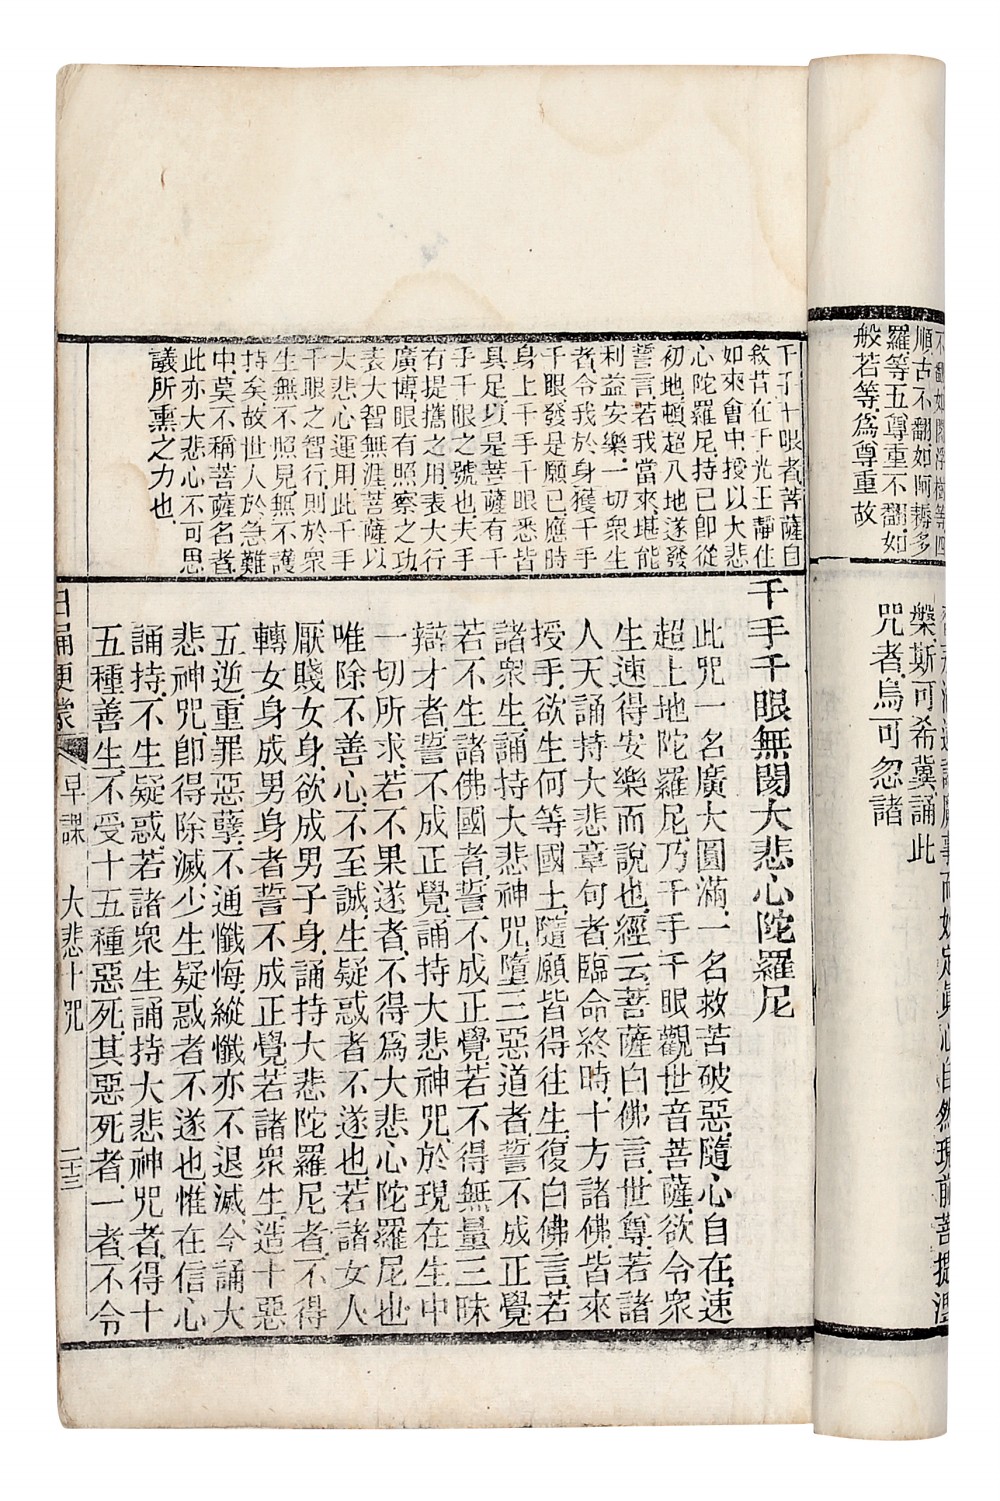 順古不翻如阿耨多
羅等五尊重不翻如
般若等爲尊重故
槃斯可希冀誦此
咒者烏可忽諸
千手千眼者菩薩自
敘昔在千光王靜住
如來會中授以大悲
心陀羅尼持已卽從
初地頓超八地遂發
誓言若我當來堪能
利益安樂一切衆生
者令我於身獲千手
千眼發是願已應時
身上千手千眼悉皆
具足以是菩薩有千
手千眼之號也夫手
有提攜之用表大行
廣博眼有照察之功
表大智無涯菩薩以
大悲心運用此千手
千眼之智行則於衆
生無不照見無不護
持矣故世人於急難
中莫不稱菩薩名者
此亦大悲心不可思
議所熏之力也
千手千眼無閡大悲心陀羅尼
此咒一名廣大圓滿一名救苦破惡隨心自在速
超上地陀羅尼乃千手千眼觀世音菩薩欲令衆
生速得安樂而說也經云菩薩白佛言世尊若諸
人天誦持大悲章句者臨命終時十方諸佛皆來
授手欲生何等國土隨願皆得往生復白佛言若
諸衆生誦持大悲神咒墮三惡道者誓不成正覺
若不生諸佛國者誓不成正覺若不得無量三昧
辯才者誓不成正覺誦持大悲神咒於現在生中
一切所求若不果遂者不得爲大悲心陀羅尼也
唯除不善心不至誠生疑惑者不遂也若諸女人
厭賤女身欲成男子身誦持大悲陀羅尼者不得
轉女身成男身者誓不成正覺若諸衆生造十惡
五逆重罪惡孽不通懺悔縱懺亦不退滅今誦大
悲神咒卽得除滅少生疑惑者不遂也惟在信心
誦持不生疑惑若諸衆生誦持大悲神咒者得十
五種善生不受十五種惡死其惡死者一者不令
日誦便蒙 早課 大悲十咒 二十三